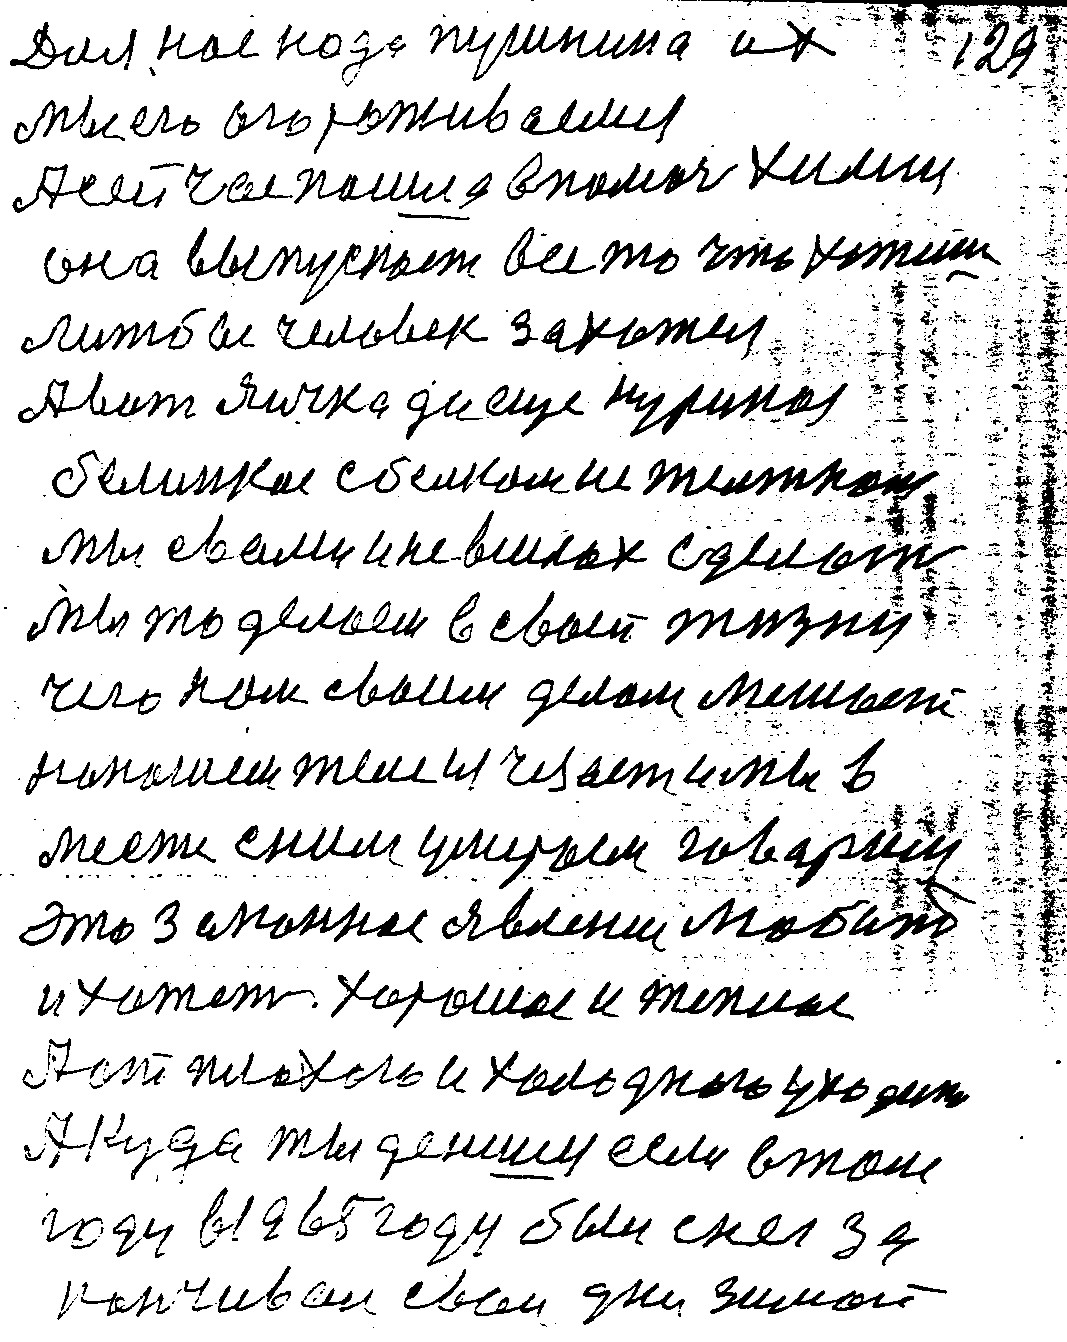 Для нас нада пушнина их 129
мы его огораживаем
А сейчас пошла в помоч химии
она выпускает все то что хотиш
лит бы человек захотел
А вот яичка да еще куриная
белинкае с белком и желтком
мы с вами и не в силах сделат
мы то делаем в своей жизни
чего нам своим делам мешает
на нашем теле и мы в
месте с ним умираем говарим
это законнае явления любит
и хочет хорошае и теплае
А от плохого и холоднаго уходит
А куда ты денишся если в том
году в 1965 году был снег за
канчивал свои дни зимой